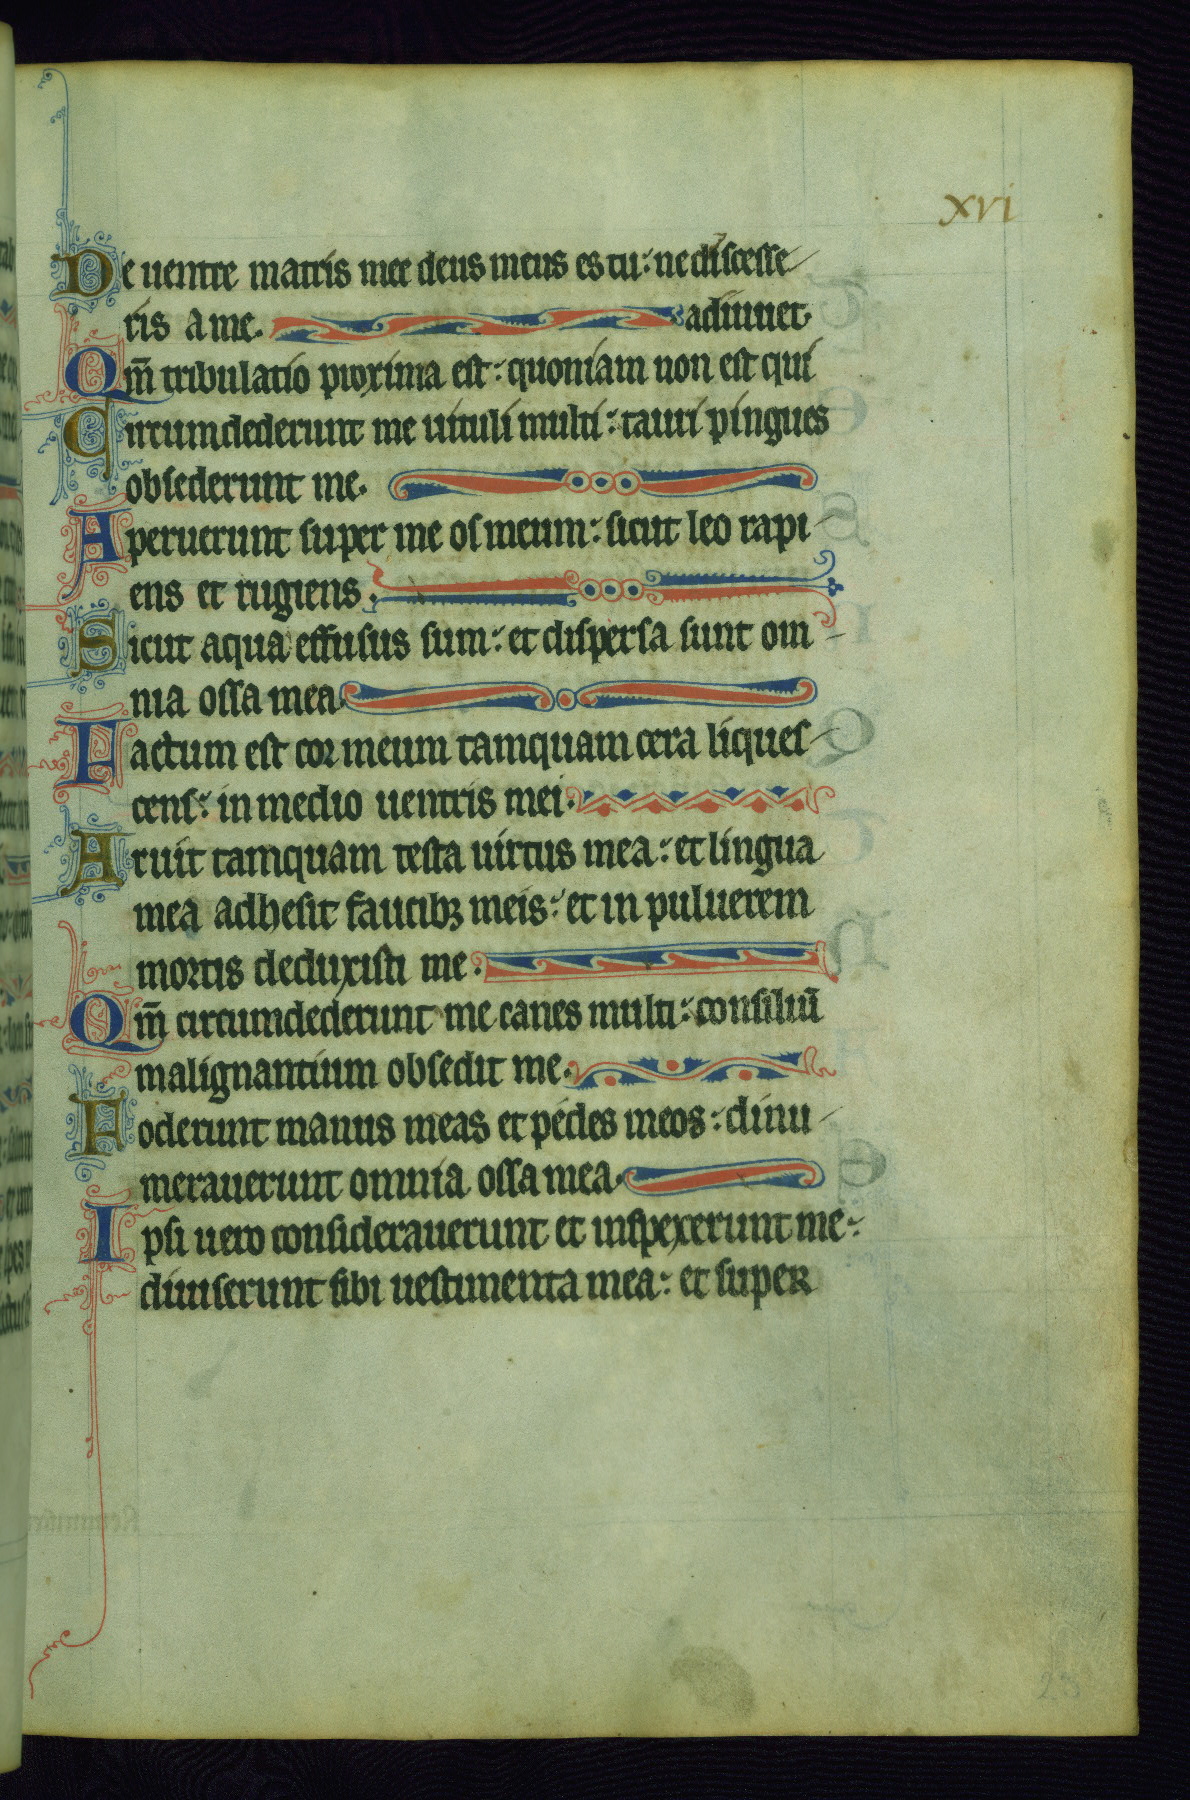 xvi
De uentre matris mee deus meus es tu: ne discesse
ris a me. adiuuet.
Qm̄ tribulatio proxima est: quoniam non est qui
Circumdederunt me uituli multi: tauri pingues
obsederunt me.
Aperuerunt super me os meum: sicut leo rapi
ens et rugiens.
Sicut aqua effusus sum: et dispersa sunt om
nia ossa mea
Factum est cor meum tamquam cera liques
cens: in medio uentris mei.
Aruit tamquam testa uirtus mea: et lingua
mea adhesit faucibꝫ meis: et in puluerem
mortis deduxisti me:
Qm̄ circumdederunt me canes multi: consiliū
malignantium obsedit me.
Foderunt manus meas et pedes meos: dinu
merauerunt omnia ossa mea.
Ipsi uero considerauerunt et inspexerunt me:
diuiserunt sibi uestimenta mea: et super
23